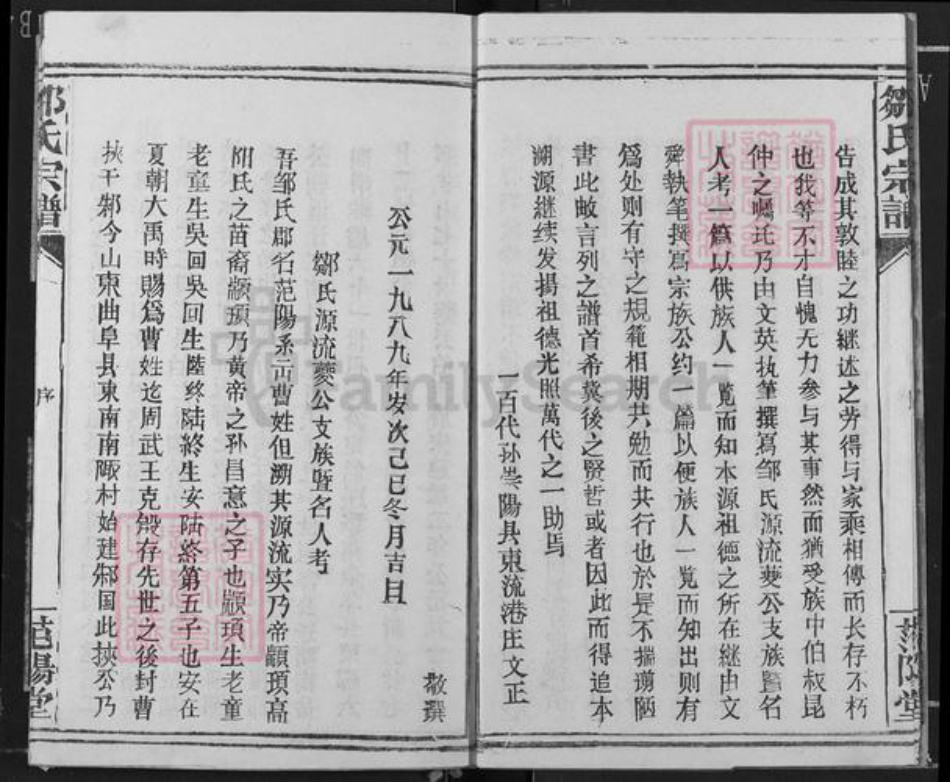 鄒氏宗譜
范陽堂
告成其敦睦之功継述之劳得与家乘相傳而长存不朽
也我等不才自愧无力参与其事然而猶受族中伯叔昆
仲之囑託乃由文英执筆撰寫邹氏源流夔公支族暨名
人考一篇以供族人一覧而知本源祖德之所在継由文
舜執笔撰寫宗族公约一篇以便族人一覧而知出则有
為处则有守之規範相期共勉而共行也於是不揣谫陋
書此敝言列之譜首希冀後之賢哲或者因此而得追本
溯源継续发揚祖德光照萬代之一助焉
一百代孙崇陽县東流港庄文正
敬撰
公元一九八九年岁次己巳冬月吉日
鄒氏源流夔公支族暨名人考
吾邹氏郡名范陽系雲曹姓但溯其源流实乃帝顓頊高
陽氏之苗裔顓頊乃黄帝之孙昌意之子也顓頊生老童
老童生吳回吳回生陸终陆終生安陆終第五子也安在
夏朝大禹时賜為曹姓迄周武王克殷存先世之後封曹
挾于邾今山東曲阜县東南南陬村始建邾国此挾公乃
邹氏宗譜
序
范陽堂
FamilySearch